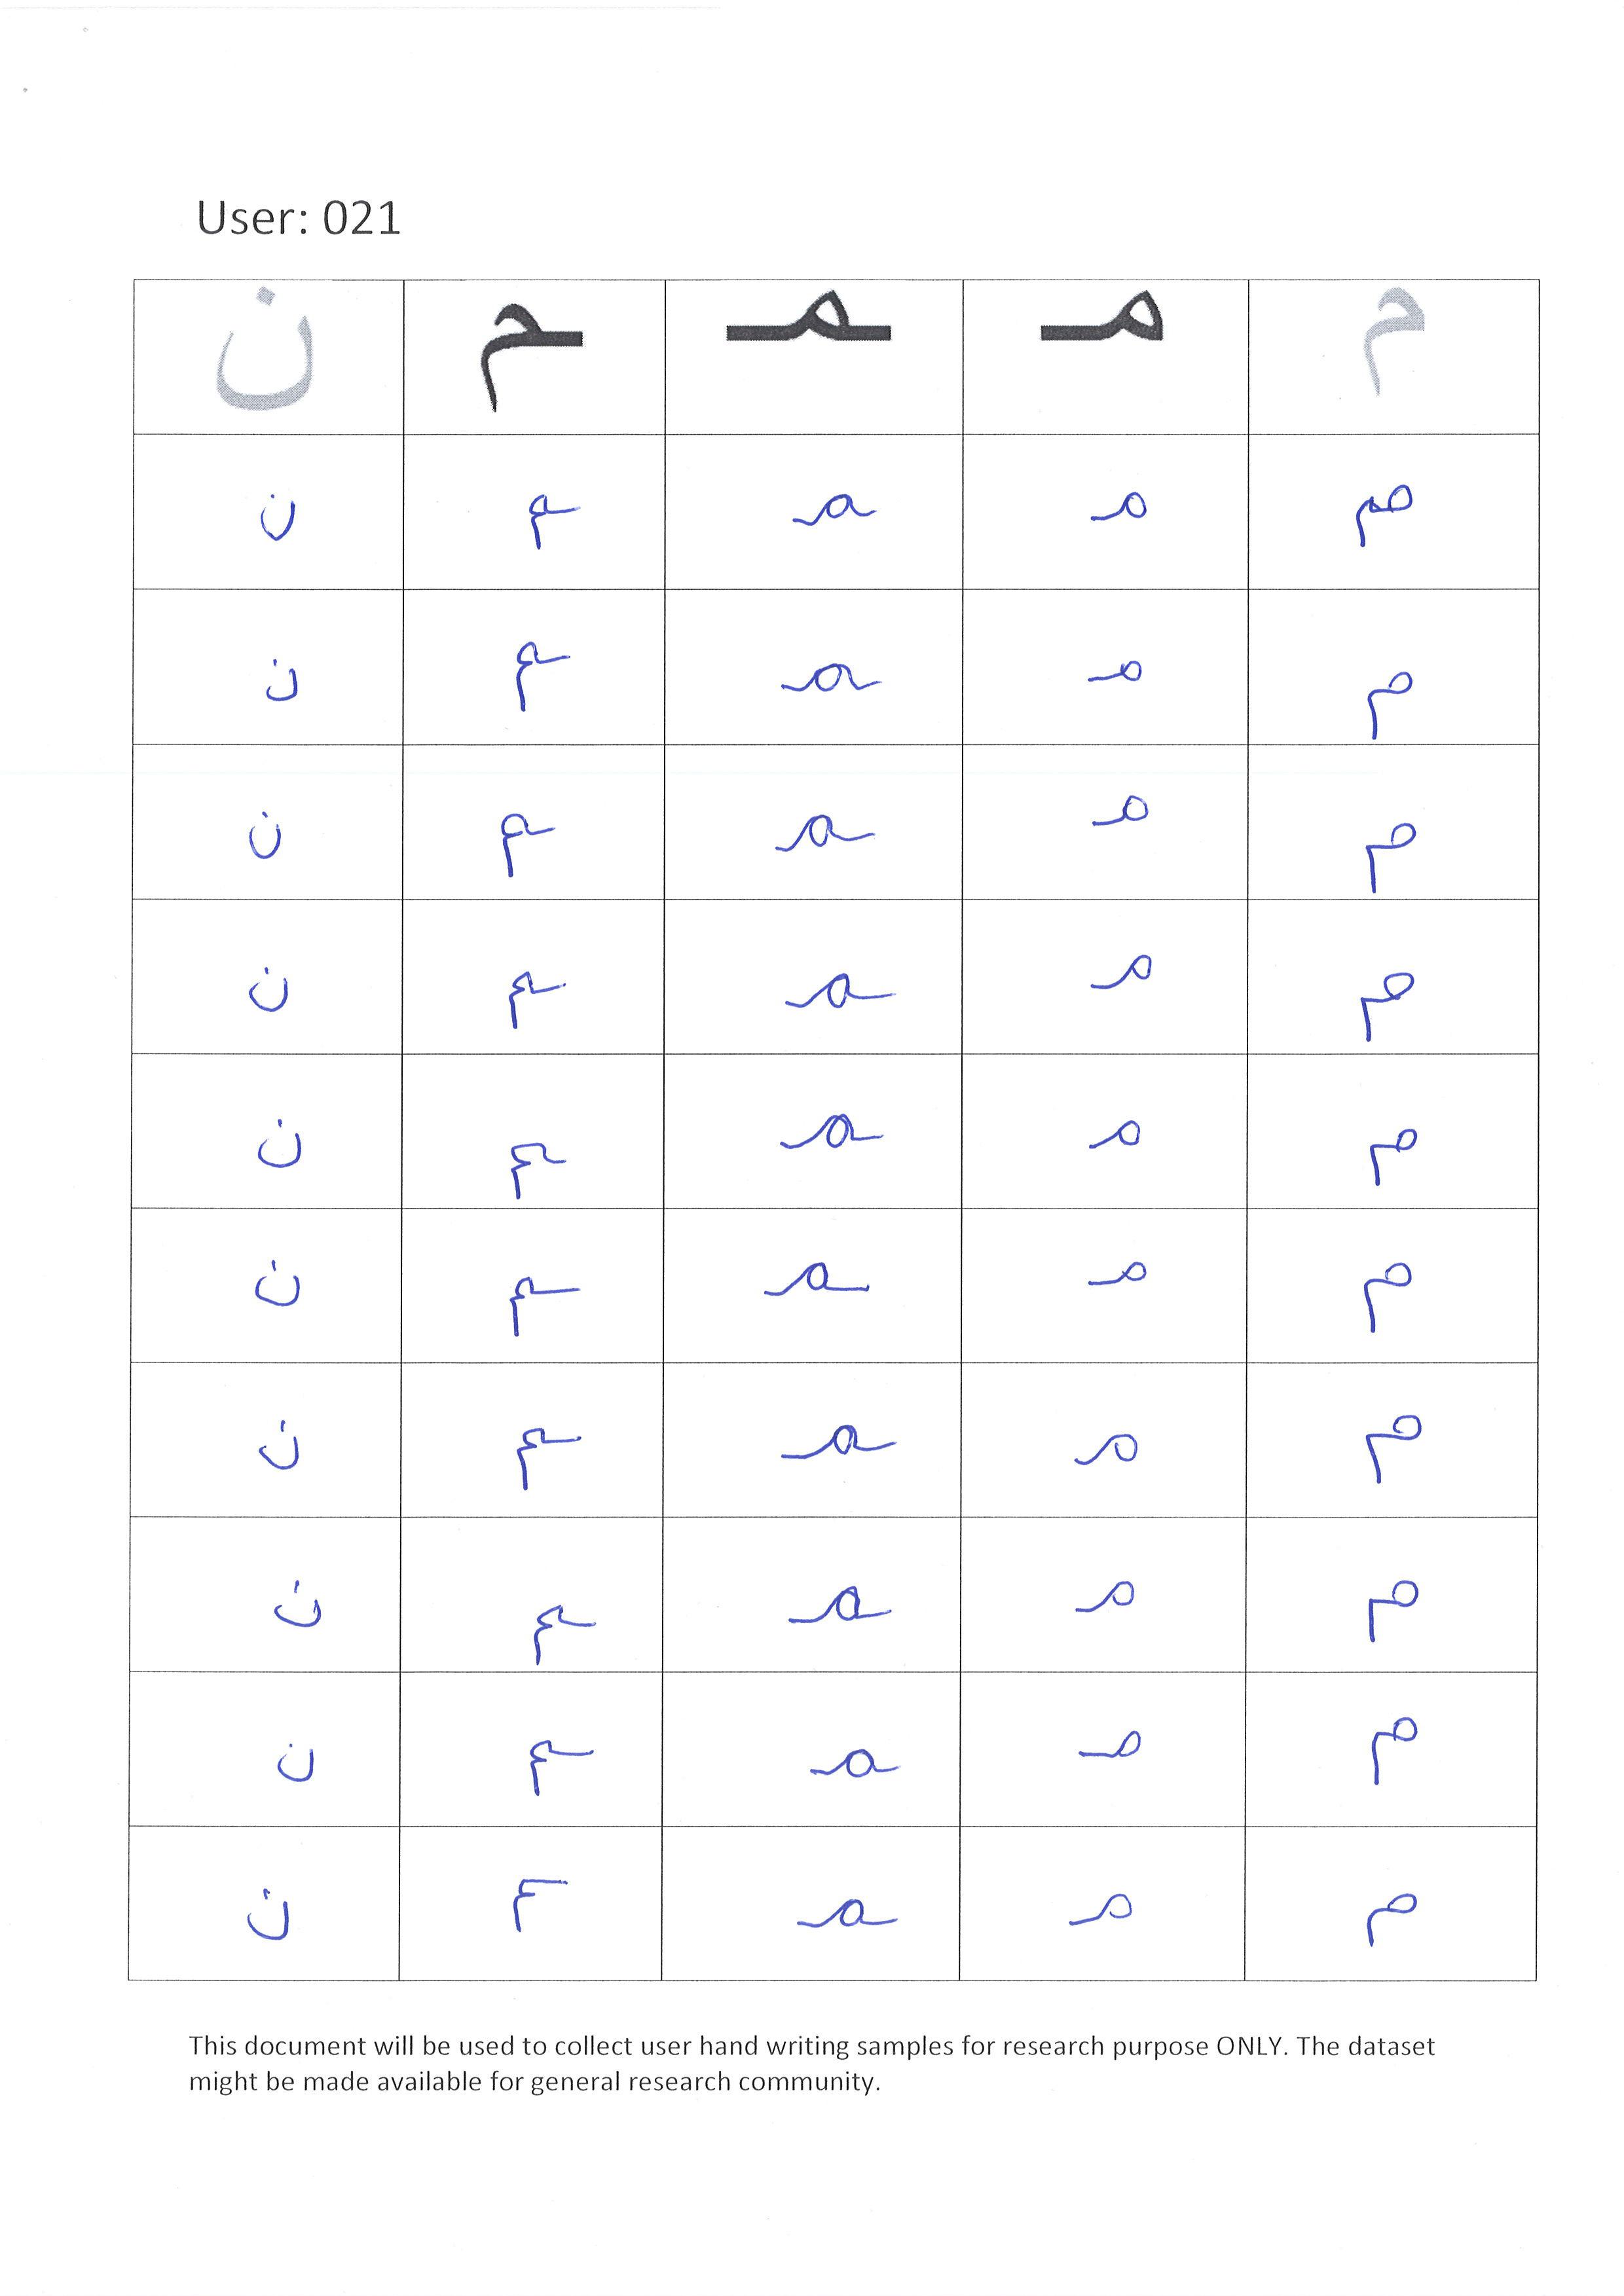 User: 021
م مـ ـمـ ـم ن
م مـ ـمـ ـم ن
م مـ ـمـ ـم ن
م مـ ـمـ ـم ن
م مـ ـمـ ـم ن
م مـ ـمـ ـم ن
م مـ ـمـ ـم ن
م مـ ـمـ ـم ن
م مـ ـمـ ـم ن
م مـ ـمـ ـم ن
م مـ ـمـ ـم ن
This document will be used to collect user hand writing samples for research purpose ONLY. The dataset
might be made available for general research community.